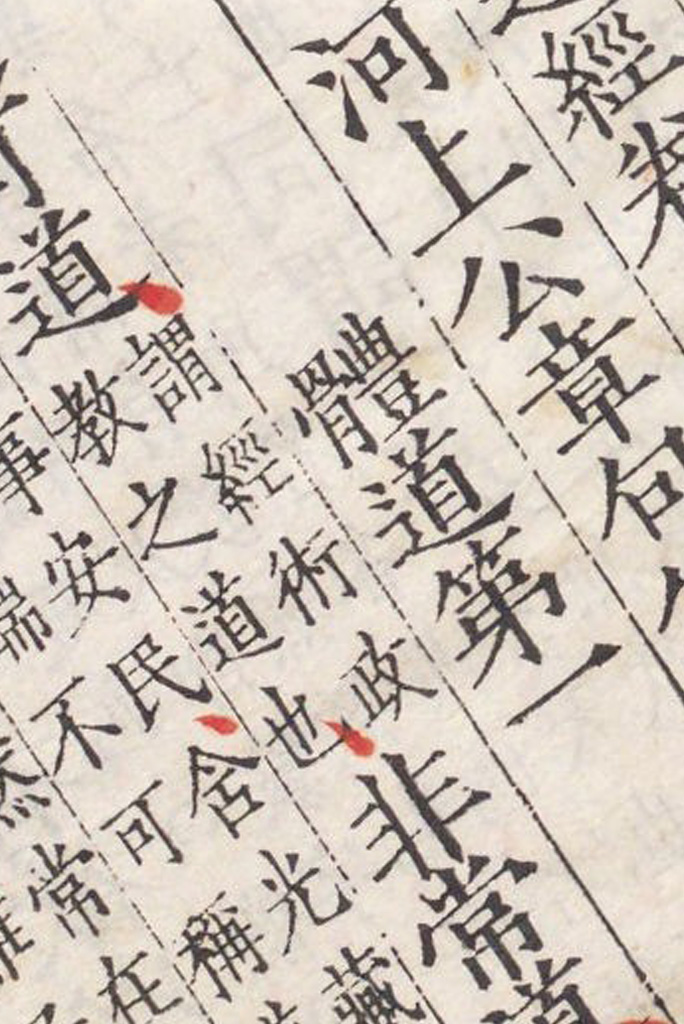 經
河上公章句
體道第一
道
謂經術政
教之道也
非常道
事安民含光藏
端不可稱
常在